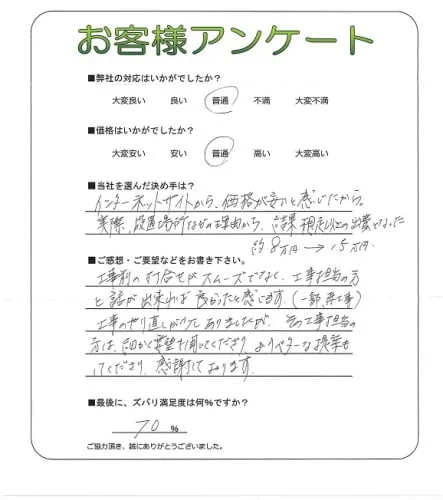 お客様アンケート
■弊社の対応はいかがでしたか？
大変良い 良い 普通 不満 大変不満
■価格はいかがでしたか？
大変安い 安い 普通 高い 大変高い
■当社を選んだ決め手は？
インターネットサイトから、価格が安いと感じたから。
実際、設置場所などの理由から、結果想定以上の出費となった
約8万円→15万円.
■ご感想・ご要望などをお書き下さい。
工事前の打合せがスムーズでなく、工事担当の方
と話が出来れば良かったと感じます。(一部 再工事)
工事のやり直しが ありましたが、その工事担当の
方は、細かく要望も聞いてくださり、よりベターな提案も
してくださり、感謝しております。
■最後に、ズバリ満足度は何%ですか？
70 %
ご協力頂き、誠にありがとうございました。